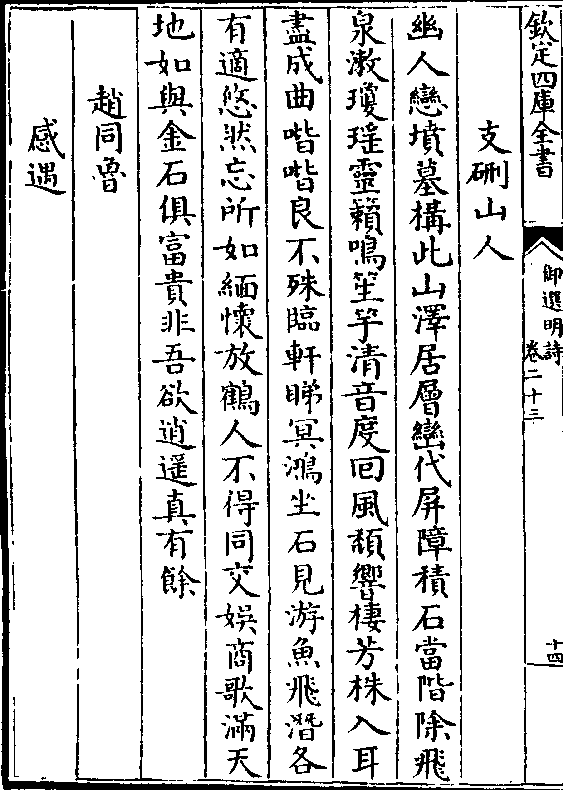 欽定四庫全書
御選明詩
卷二十三
十四
支硎山人
幽人戀墳墓構此山澤居層巒代屏障積石當階除飛
泉漱瓊瑤靈籟鳴笙竽清音度回風頽響棲芳株入耳
盡成曲喈喈良不殊臨軒睇冥鴻坐石見游魚飛潛各
有適悠然忘所如緬懷放鶴人不得同交娛商歌滿天
地如與金石俱富貴非吾欲逍遥真有餘
趙同魯
感遇